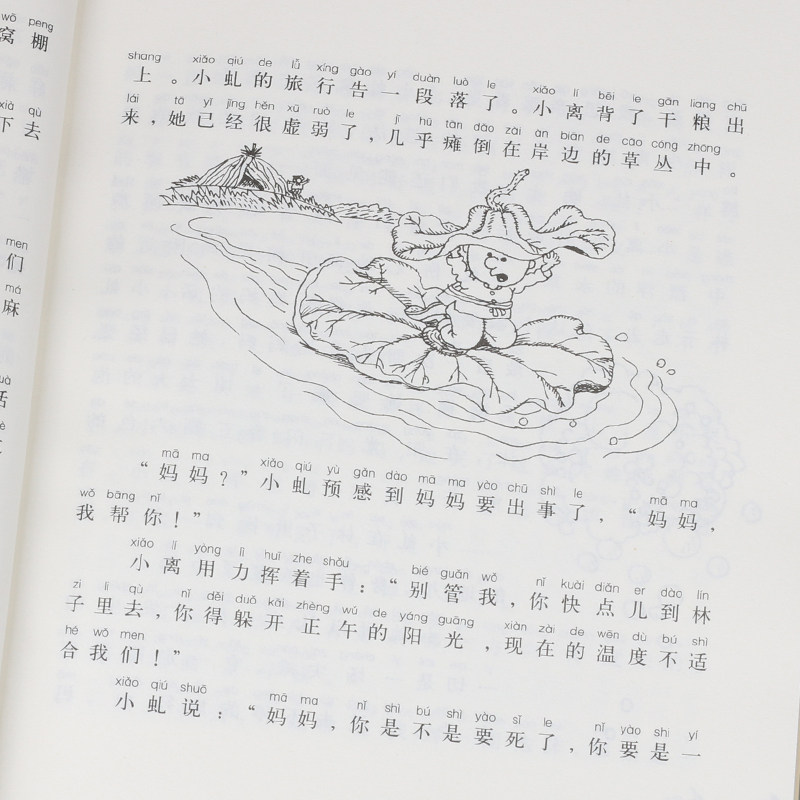 wō peng
窝棚
xià qù
下去
men
们
má
麻
shang xiǎo qiú de lǚ xíng gào yí duàn luò le xiǎo lí bēi le gān liang chū
上。小虬的旅行告一段落了。小离背了干粮出
lái tā yǐ jīng hěn xū ruò le jī hū tān dǎo zài àn biān de cǎo cóng zhōng
来，她已经很虚弱了，几乎瘫倒在岸边的草丛中。
mā ma xiǎo qiú yù gǎn dào mā ma yào chū shì le mā ma
“妈妈？”小虬预感到妈妈要出事了，“妈妈，
wǒ bāng nǐ
我帮你！”
xiǎo lí yòng lì huī zhe shǒu bié guǎn wǒ nǐ kuài diǎn er dào lín
小离用力挥着手：“别管我，你快点儿到林
zi li qù nǐ děi duǒ kāi zhèng wǔ de yáng guāng xiàn zài de wēn dù bú shì
子里去，你得躲开正午的阳光，现在的温度不适
hé wǒ men
合我们！”
xiǎo qiú shuō mā ma nǐ shì bú shì yào sǐ le nǐ yào shi yí
小虬说：“妈妈，你是不是要死了，你要是一